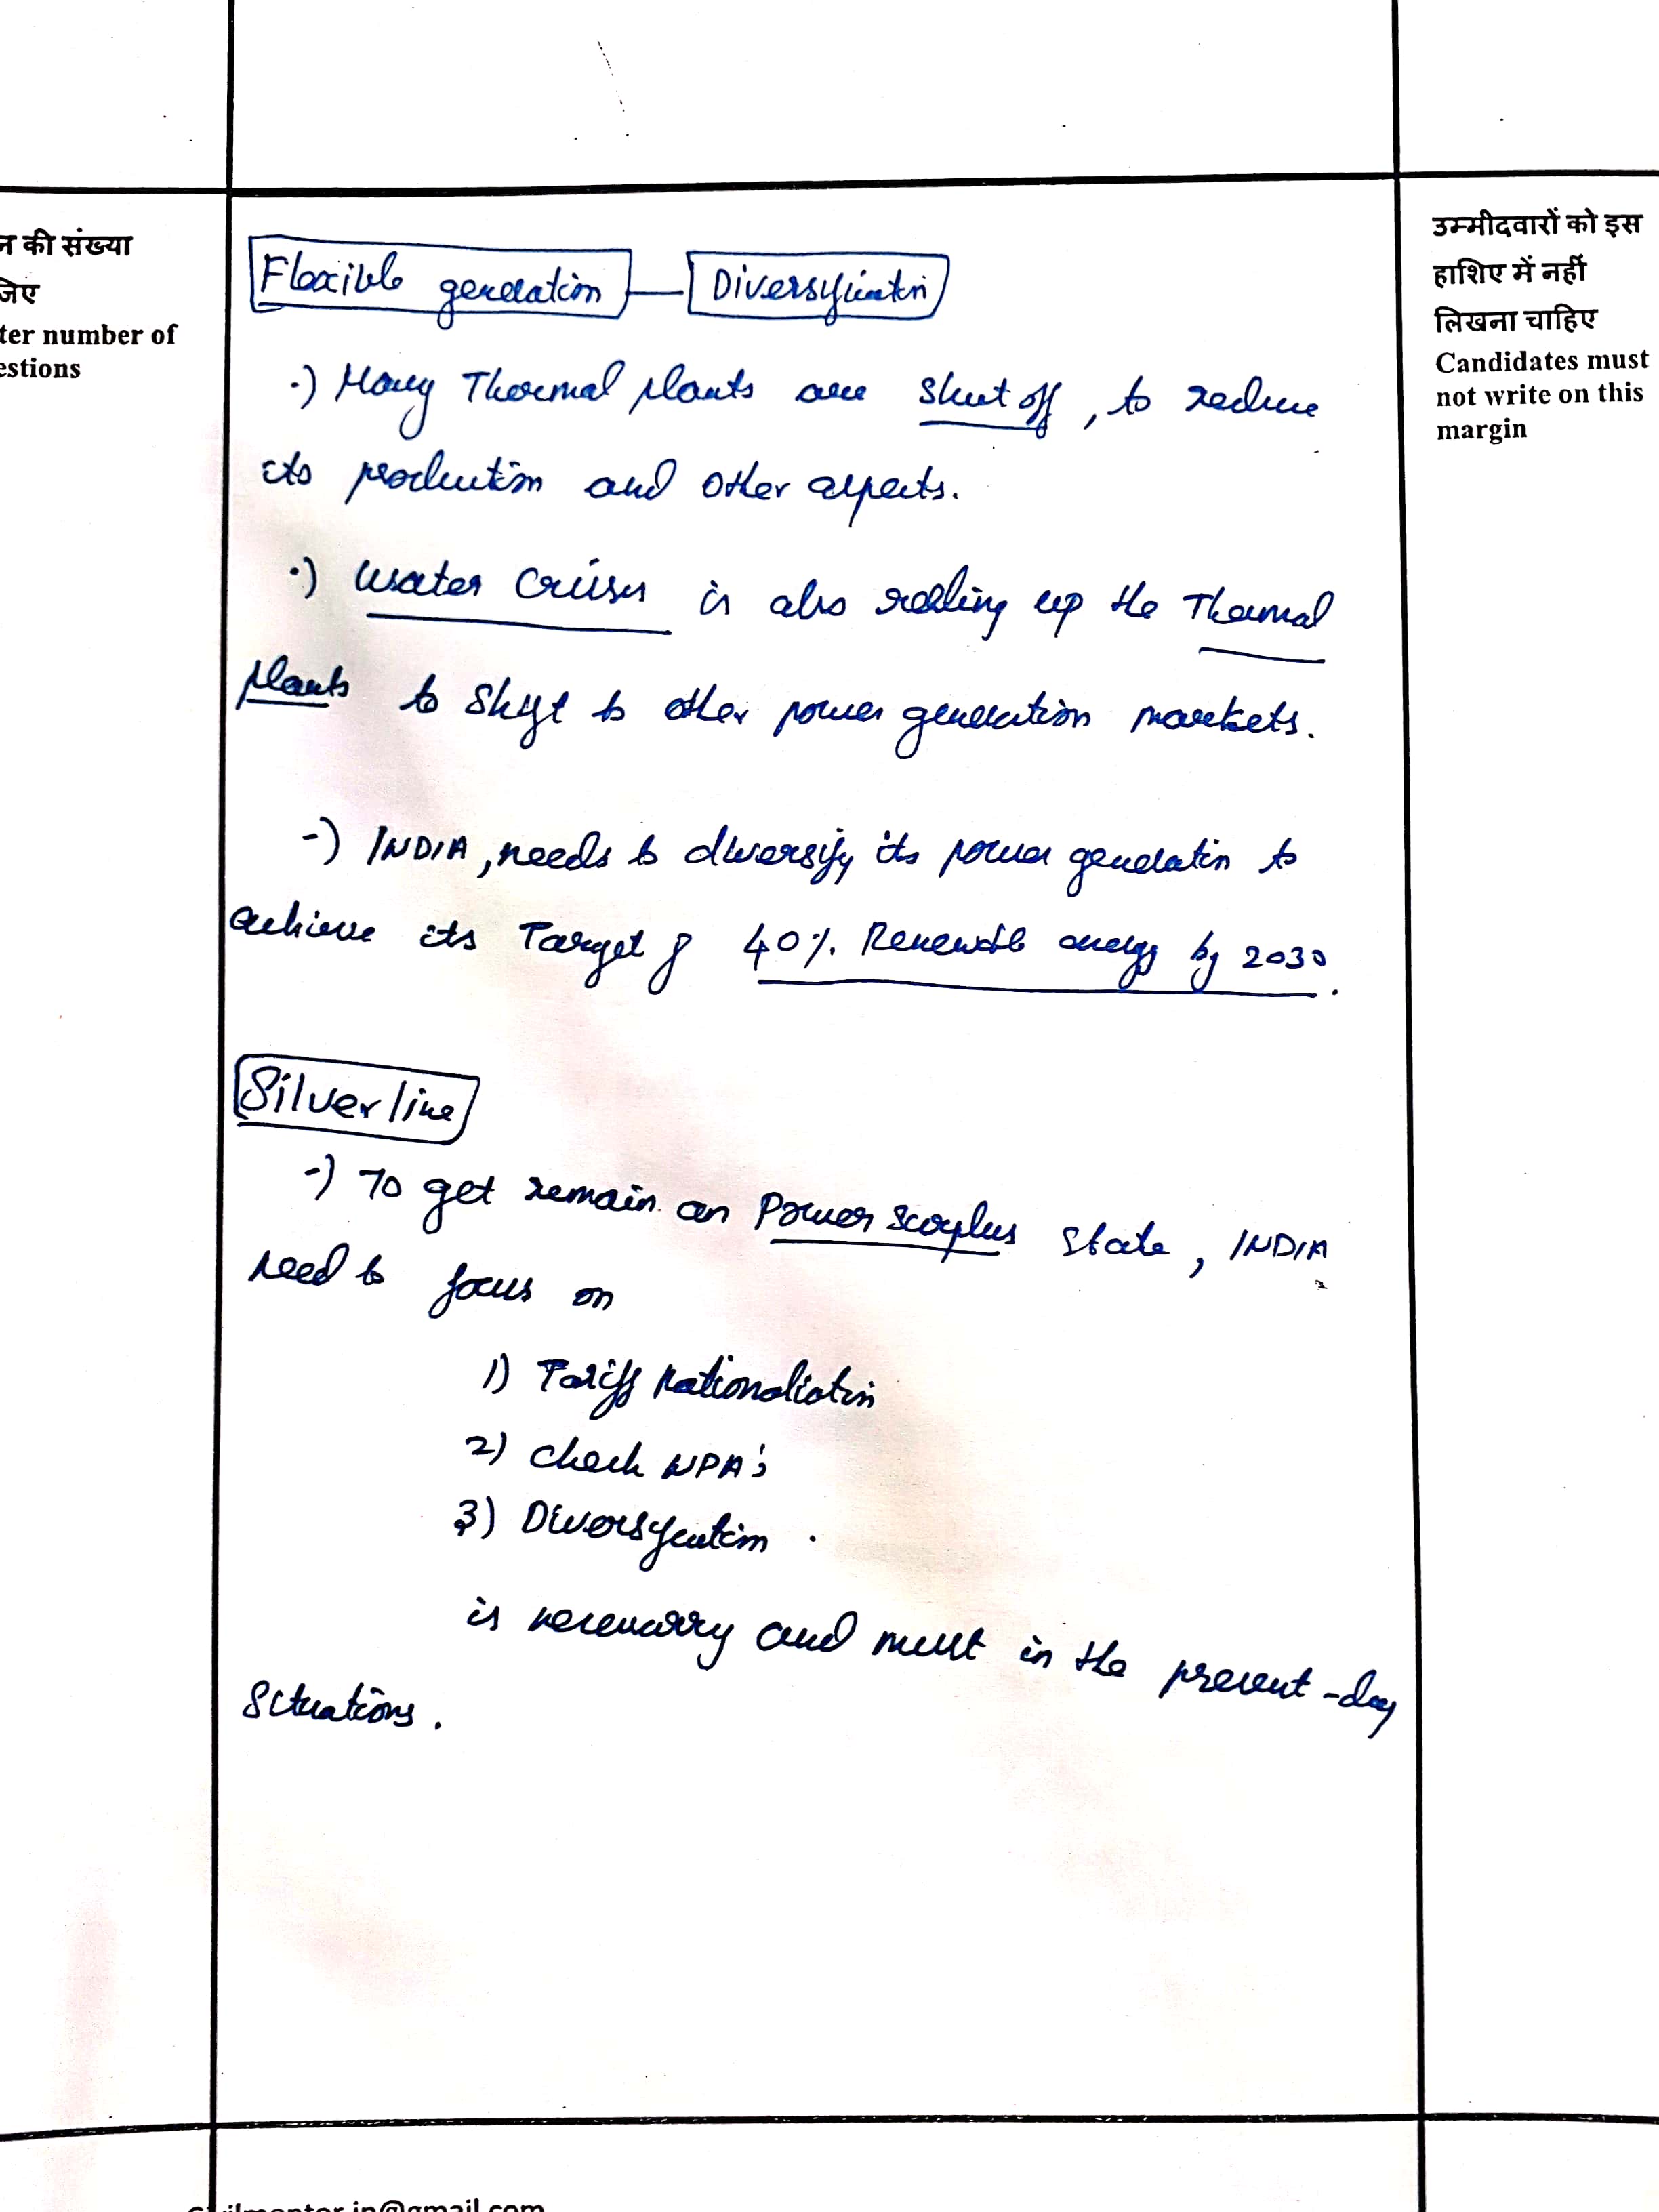 न की संख्या
जिए
ter number of
estions
उम्मीदवारों को इस
हाशिए में नहीं
लिखना चाहिए
Candidates must
not write on this
margin
Flexible generation — Diversification
·) Many Thermal plants are shut off, to reduce
its production and other aspects.
·) Water Crises is also up the Thermal
plants to shift to other power generation markets.
-) INDIA, needs to diversify its power generation to
achieve its Target of 40% Renewable energy by 2030.
Silverline
-) To get remain an Power surplus state, INDIA
need to focus on
1) Tariff Rationalization
2) Check NPA's
3) Diversification.
is necessary and must in the present-day
situations.
civilmentor.in@gmail.com